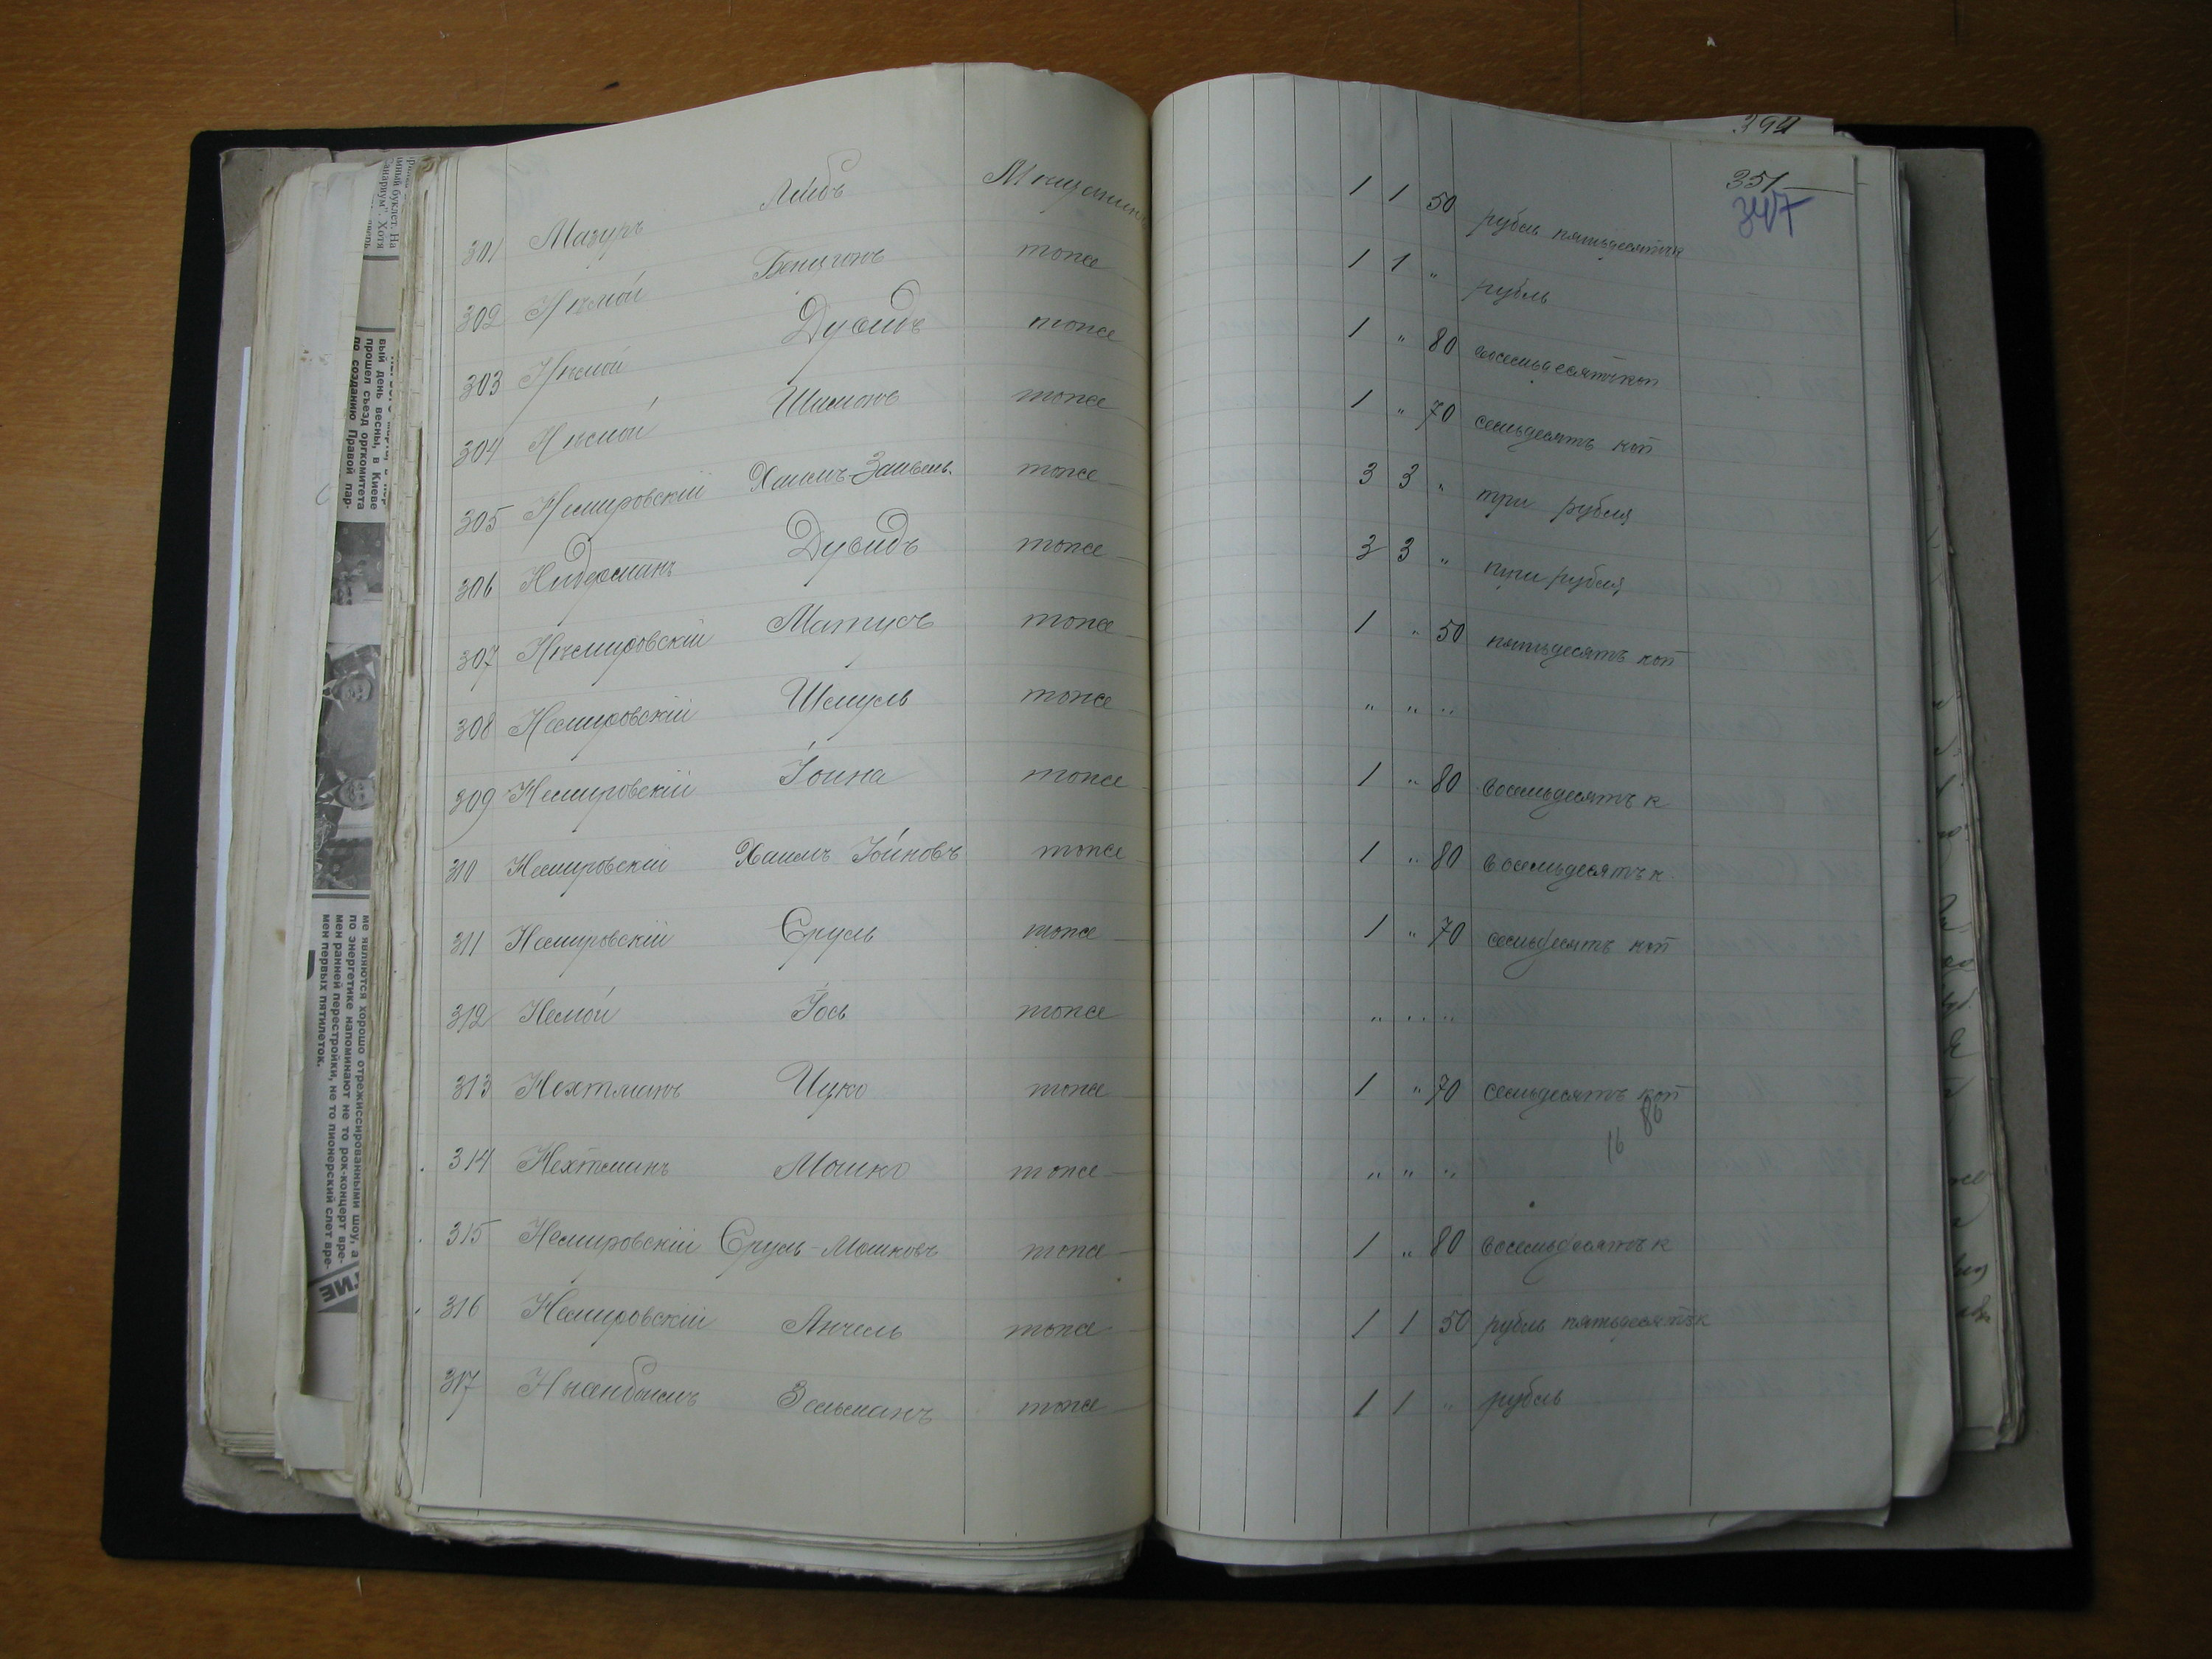 394
351
347
301 Мазуръ Лейбъ Мещанинъ 1 1 50 рубль пятьдесятъ к
302 Нѣмой Бенционъ тоже 1 1 " рубль
303 Нѣмой Дувидъ тоже 1 " 80 восемьдесятъ коп
304 Нѣмой Шимонъ тоже 1 " 70 семьдесятъ коп
305 Немировскій Хаимъ-Зайвель тоже 3 3 " три рубля
306 Нидерманъ Дувидъ тоже 3 3 " три рубля
307 Нѣмировскій Матусъ тоже 1 " 50 пятьдесятъ коп
308 Немировскій Шмуль тоже " " "
309 Немировскій Іойна тоже 1 " 80 восемьдесятъ к
310 Немировскій Хаимъ Іойновъ тоже 1 " 80 восемьдесятъ к.
311 Немировскій Сруль тоже 1 " 70 семьдесятъ коп
312 Немой Іось тоже " " "
313 Нехтманъ Ицко тоже 1 " 70 семьдесятъ коп
16 80
314 Нехтманъ Мошко тоже " " "
315 Немировскій Сруль-Мошковъ тоже 1 " 80 восемьдесятъ к
316 Немировскій Анчель тоже 1 1 50 рубль пятьдесятъ к
317 Зельманъ тоже 1 1 " рубль
вый день весны, в Киеве
прошел съезд оргкомитета
по созданию Правой пар-
ме являются хорошо отрежиссированными шоу, а
по энергетике напоминают не то рок-концерт вре-
мен ранней перестройки, не то пионерский слет вре-
мен первых пятилеток.